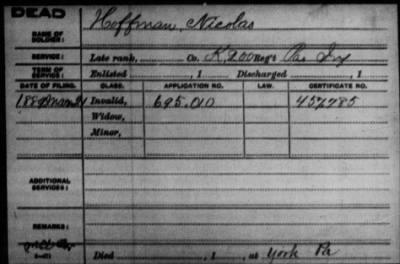 DEAD
NAME OF SOLDIER: Hoffman, Nicolas
SERVICE: Late rank, Co. K 200 Reg't Pa. Inf
TERM OF SERVICE: Enlisted , 1 Discharged , 1
DATE OF FILING. CLASS. APPLICATION NO. LAW. CERTIFICATE NO.
1889 Invalid, 695.010 457785
Widow,
Minor,
ADDITIONAL SERVICES:
REMARKS:
Died , 1 , at York Pa